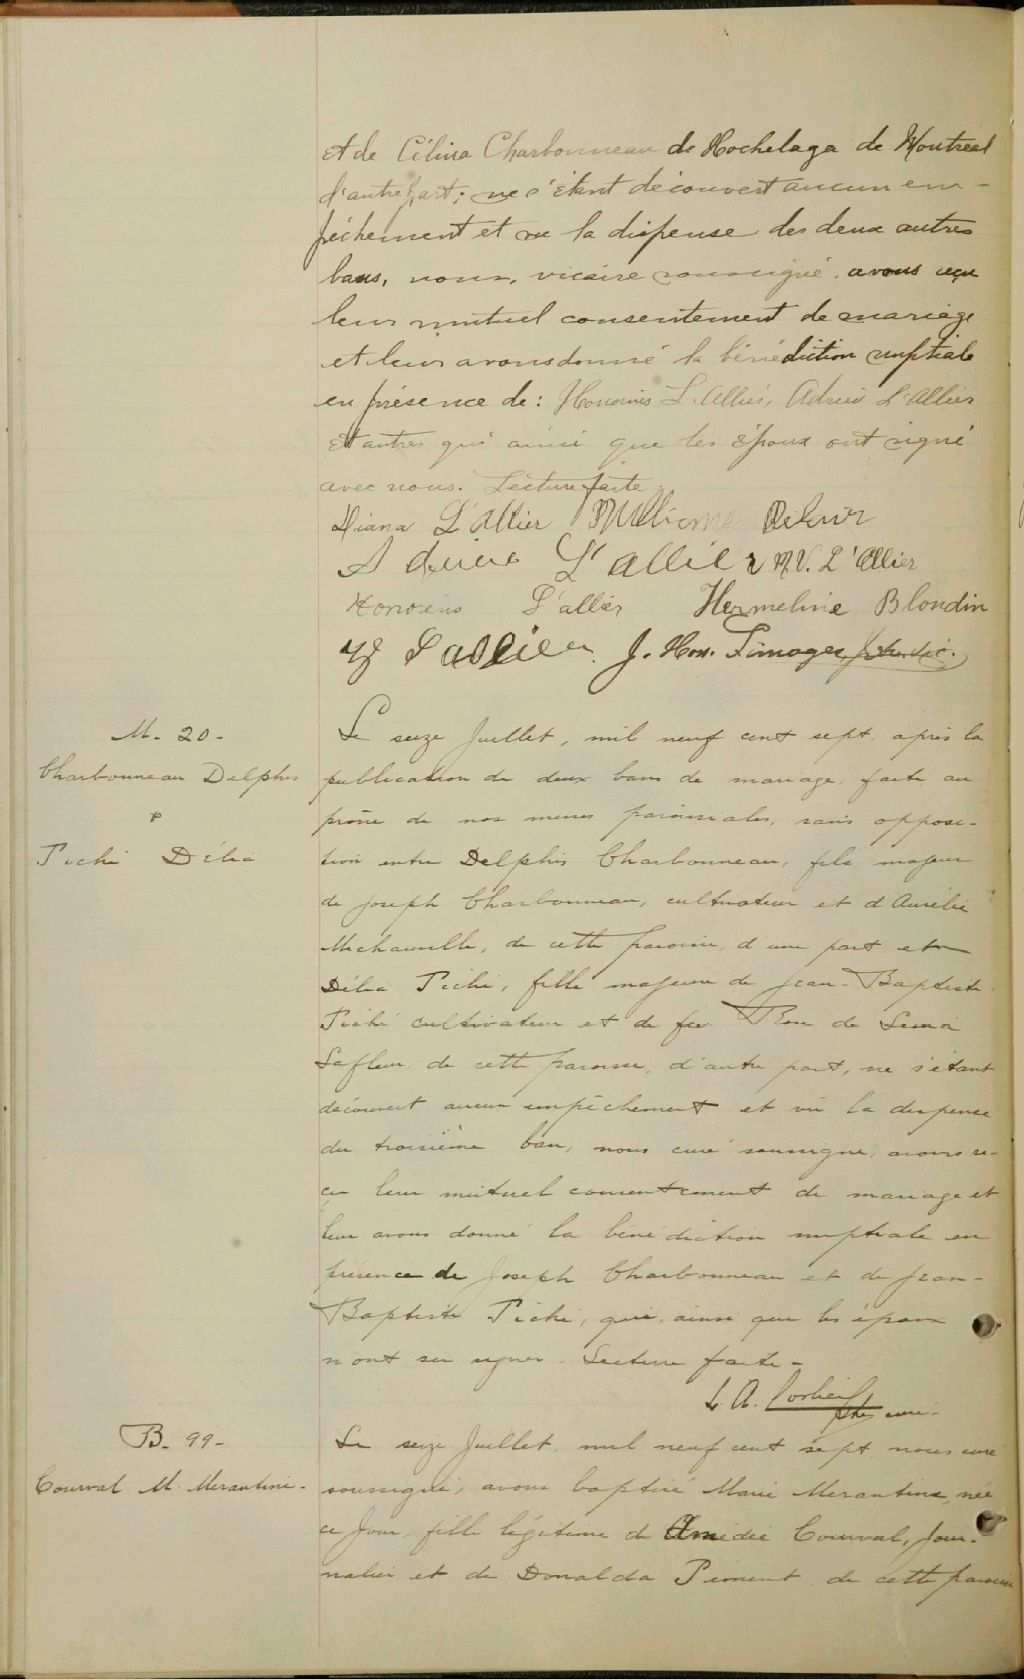 et de Célina Charbonneau de Hochelaga de Montreal
d'autre part; ne s'étant découvert aucun em-
pêchement et vu la dispense des deux autres
bans, nous, vicaire soussigné, avons reçu
leur mutuel consentement de mariage
et leur avons donné la bénédiction nuptiale
en présence de: Honorius L'Allier, Adrien L'Allier
et autres qui ainsi que les époux ont signé
avec nous. Lecture faite.
Diana L'Allier
L'allier M.V. L'Allier
L'allier Hermeline Blondin
J. Hon. Limoges, Ptre vic.
M. 20 -
Charbonneau Delphis
&
Piché Délia
Le seize Juillet, mil neuf cent sept, après la
publication de deux bans de mariage, faite au
prône de nos messes paroissiales, sans opposi-
tion entre Delphis Charbonneau, fils majeur
de Joseph Charbonneau, cultivateur et d'Aurélie
de cette paroisse, d'une part et
Délia Piché, fille majeure de Jean-Baptiste
Piché cultivateur et de feu Rose de Lima
Lafleur de cette paroisse, d'autre part, ne s'étant
découvert aucun empêchement et vu la dispense
du troisième ban, nous curé soussigné, avons re-
çu leur mutuel consentement de mariage et
leur avons donné la bénédiction nuptiale en
présence de Joseph Charbonneau et de Jean-
Baptiste Piché, qui, ainsi que les époux
n'ont su signer. Lecture faite -
L. A. Corbeil
ptre curé -
B. 99 -
Courval M. Merantine -
Le seize Juillet, mil neuf cent sept, nous curé
soussigné, avons baptisé Marie Merantine, née
ce jour, fille légitime de Amédée Courval, jour-
nalier et de Donalda Piment de cette paroisse